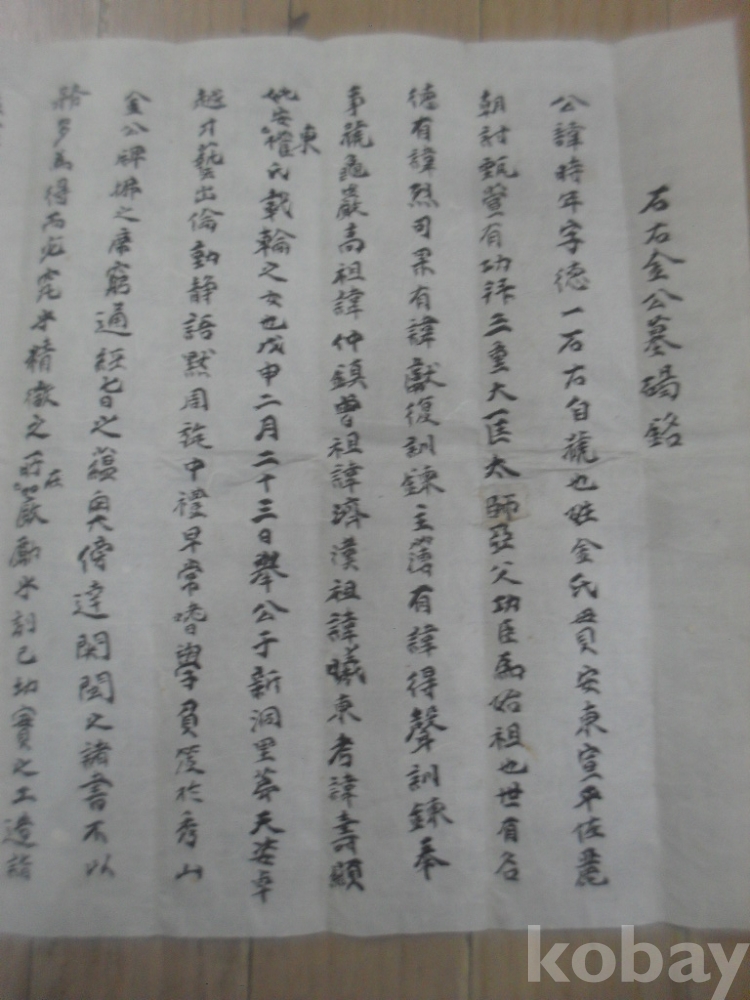 石右金公墓碣銘
公諱時年字德一石右自號也姓金氏貫安東宣平佐麗
朝討甄萱有功拜三重大匡太師亞父功臣爲始祖也世有名
德有諱烈司果有諱獻復訓鍊主薄有諱得聲訓鍊奉
事號龜巖高祖諱仲鎭曾祖諱濟漢祖諱曦東考諱壽顯
妣安東權氏載輪之女也戊申二月二十三日擧公于新洞里第天姿卓
越才藝出倫動靜語默周旋中禮早常嗜學負笈於秀山
金公禆 之 窮通經旨之蘊奧傍達關閩之諸書不以
務多爲得而 究 精微之所在 勵 刻己功實之工遣諸
kobay